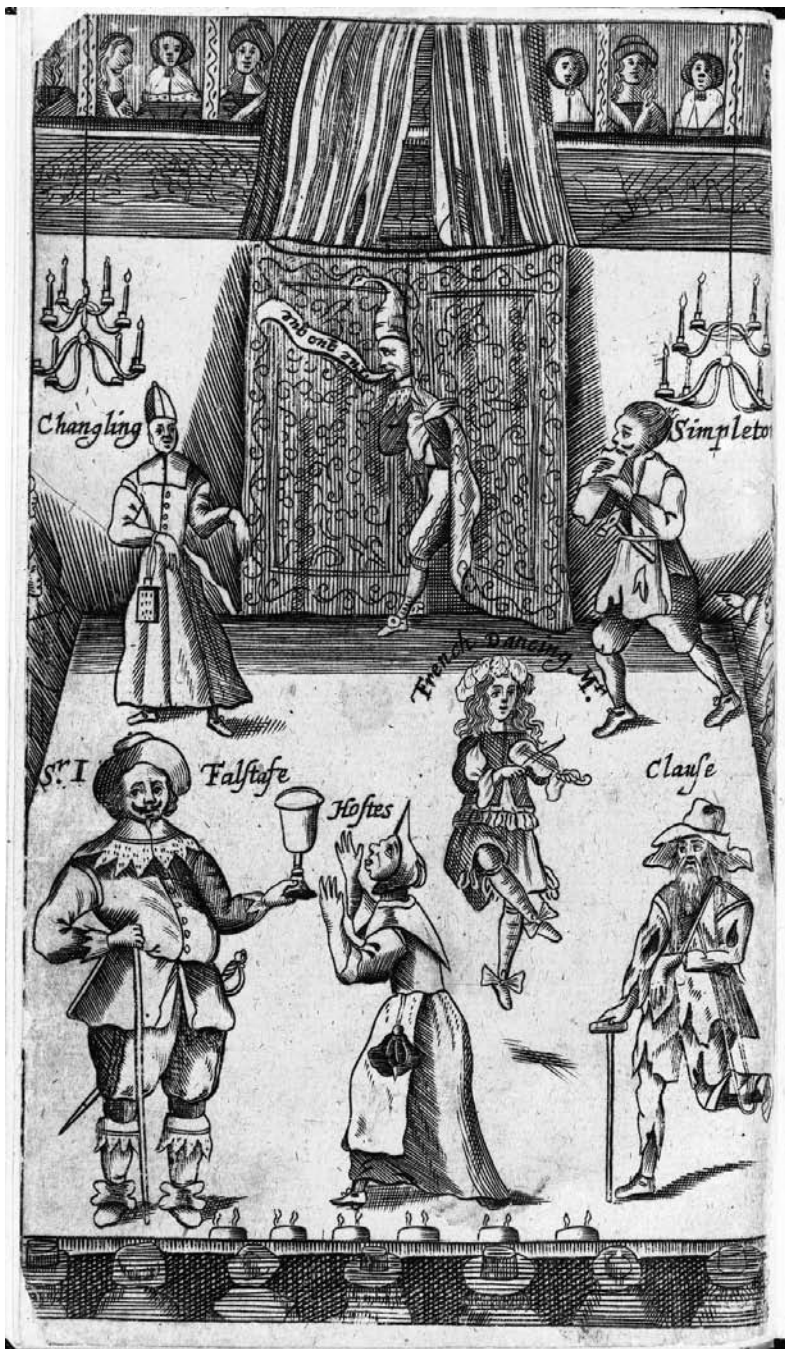 Tu quo que
Changling
Simpleto
French Dancing Mr.
Sr. I Falstafe
Hostes
Clause